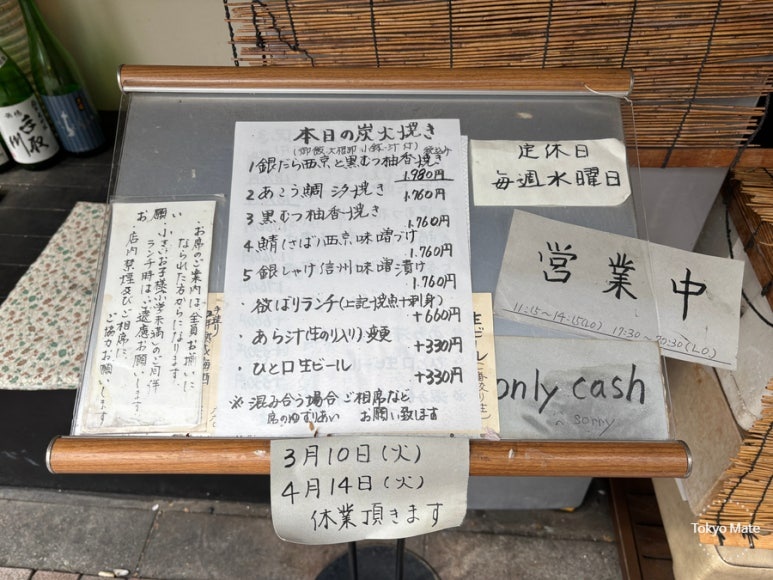 本日の炭火焼き
(御飯、大根卸、小鉢、汁、付) 税込み
1 銀だら西京と黒むつ柚香焼き
1.980円
2 あこう鯛 汐焼き 1.760円
3 黒むつ柚香焼き
1.760円
4 鯖(さば)西京味噌づけ
1.760円
5 銀しゃけ信州味噌漬け
1.760円
・欲ばりランチ(上記焼魚+刺身)
+660円
・あら汁(生のり入り)変更
+330円
・ひと口生ビール
+330円
※混み合う場合ご相席など
席のゆずりあい お願い致します
定休日
毎週水曜日
営業中
11:15~14:15(LO) 17:30~20:30(LO)
only cash
~ sorry
お願い
・お席のご案内は全員お揃いに
なられた方からになります。
・小さいお子様(小学未満)のご同伴
ランチ時はご遠慮お願いします。
・店内禁煙及びご相席に、
ご協力お願いします
3月10日(火)
4月14日(火)
休業頂きます
Tokyo Mate